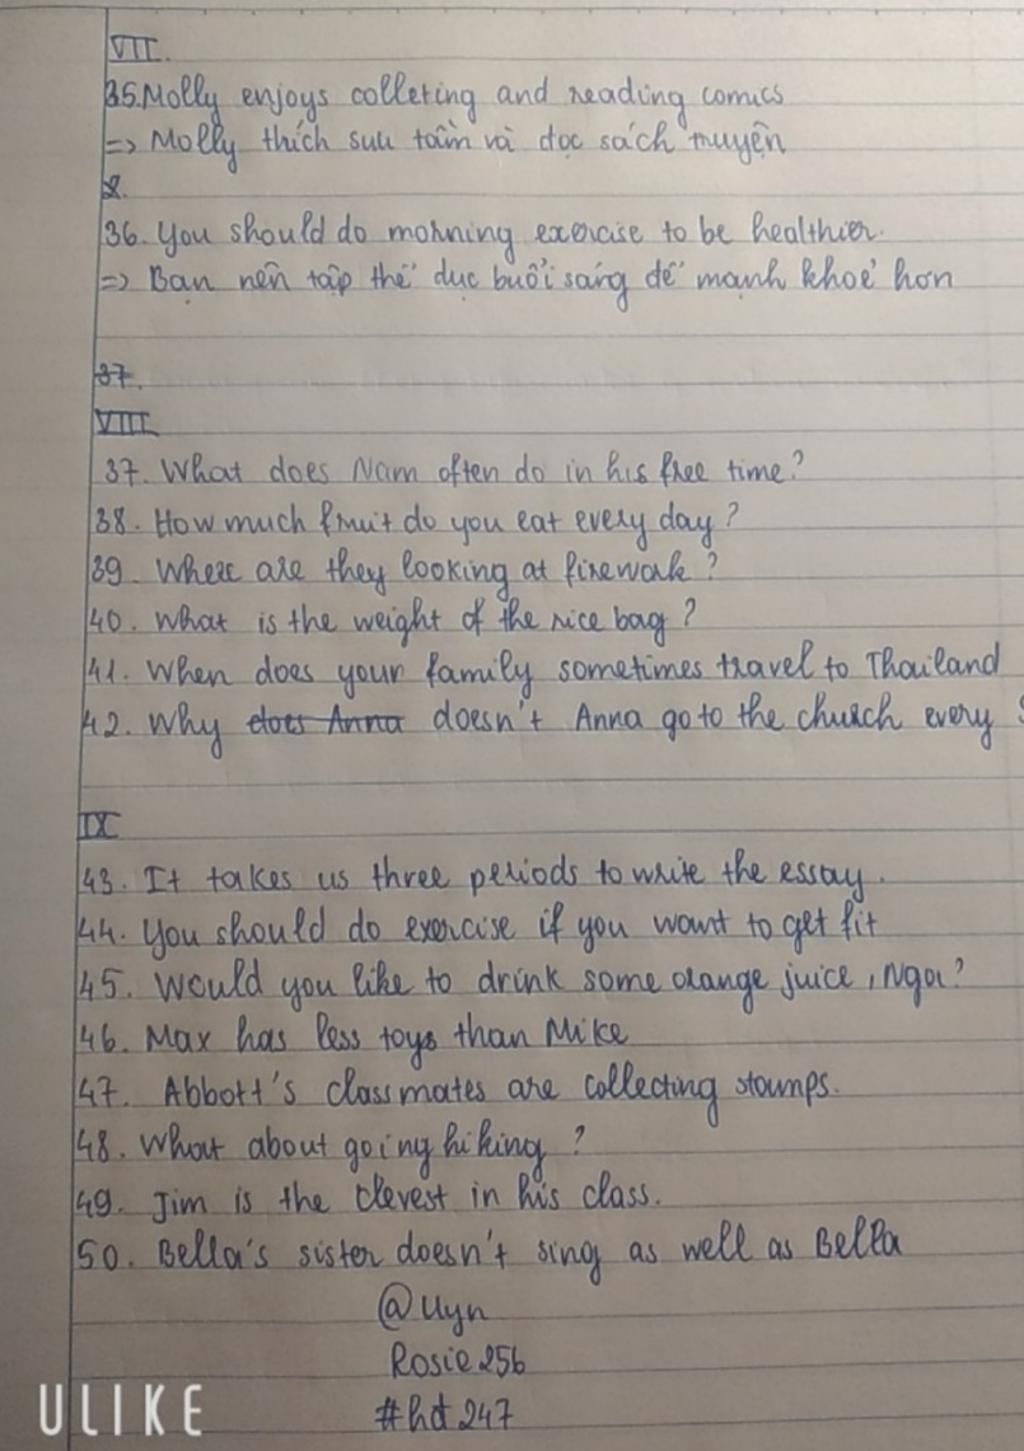 VII.
35. Molly enjoys colleting and reading comics
=> Molly thích sưu tầm và đọc sách truyện
36. You should do morning exercise to be healthier.
=> Bạn nên tập thể dục buổi sáng để mạnh khoẻ hơn
37.
VIII
37. What does Nam often do in his free time?
38. How much fruit do you eat every day?
39. Where are they looking at firework?
40. What is the weight of the rice bag?
41. When does your family sometimes travel to Thailand
42. Why does Anna doesn't Anna go to the church every
IX
43. It takes us three periods to write the essay.
44. You should do exercise if you want to get fit
45. Would you like to drink some orange juice, Nga?
46. Max has less toys than Mike
47. Abbott's classmates are collecting stamps.
48. What about going hiking?
49. Jim is the clevest in his class.
50. Bella's sister doesn't sing as well as Bella
@Uyn
Rosie256
#hd247
ULIKE